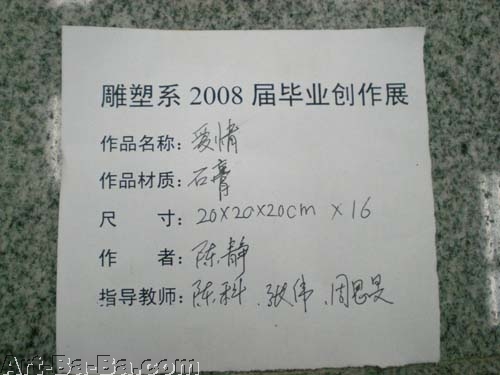 雕塑系 2008 届毕业创作展
作品名称：爱情
作品材质：石膏
尺 寸：20×20×20cm ×16
作 者：陈静
指导教师：陈科、张伟、周思旻
Art-Ba-Ba.com
Art-Ba-Ba.com